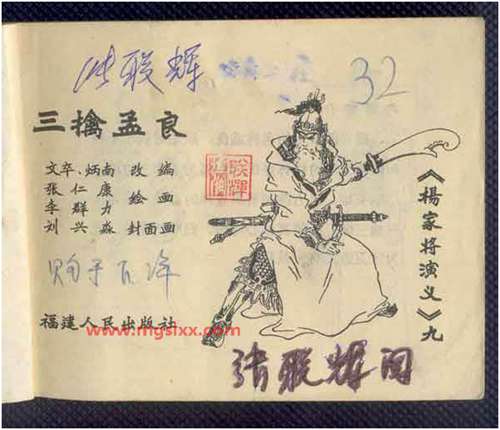 张联辉
32
三擒孟良
文卒、炳南 改编
张仁康
李群力 绘画
刘兴淼 封面画
福建人民出版社
《杨家将演义》九
www.mgslxx.com
张联辉阅